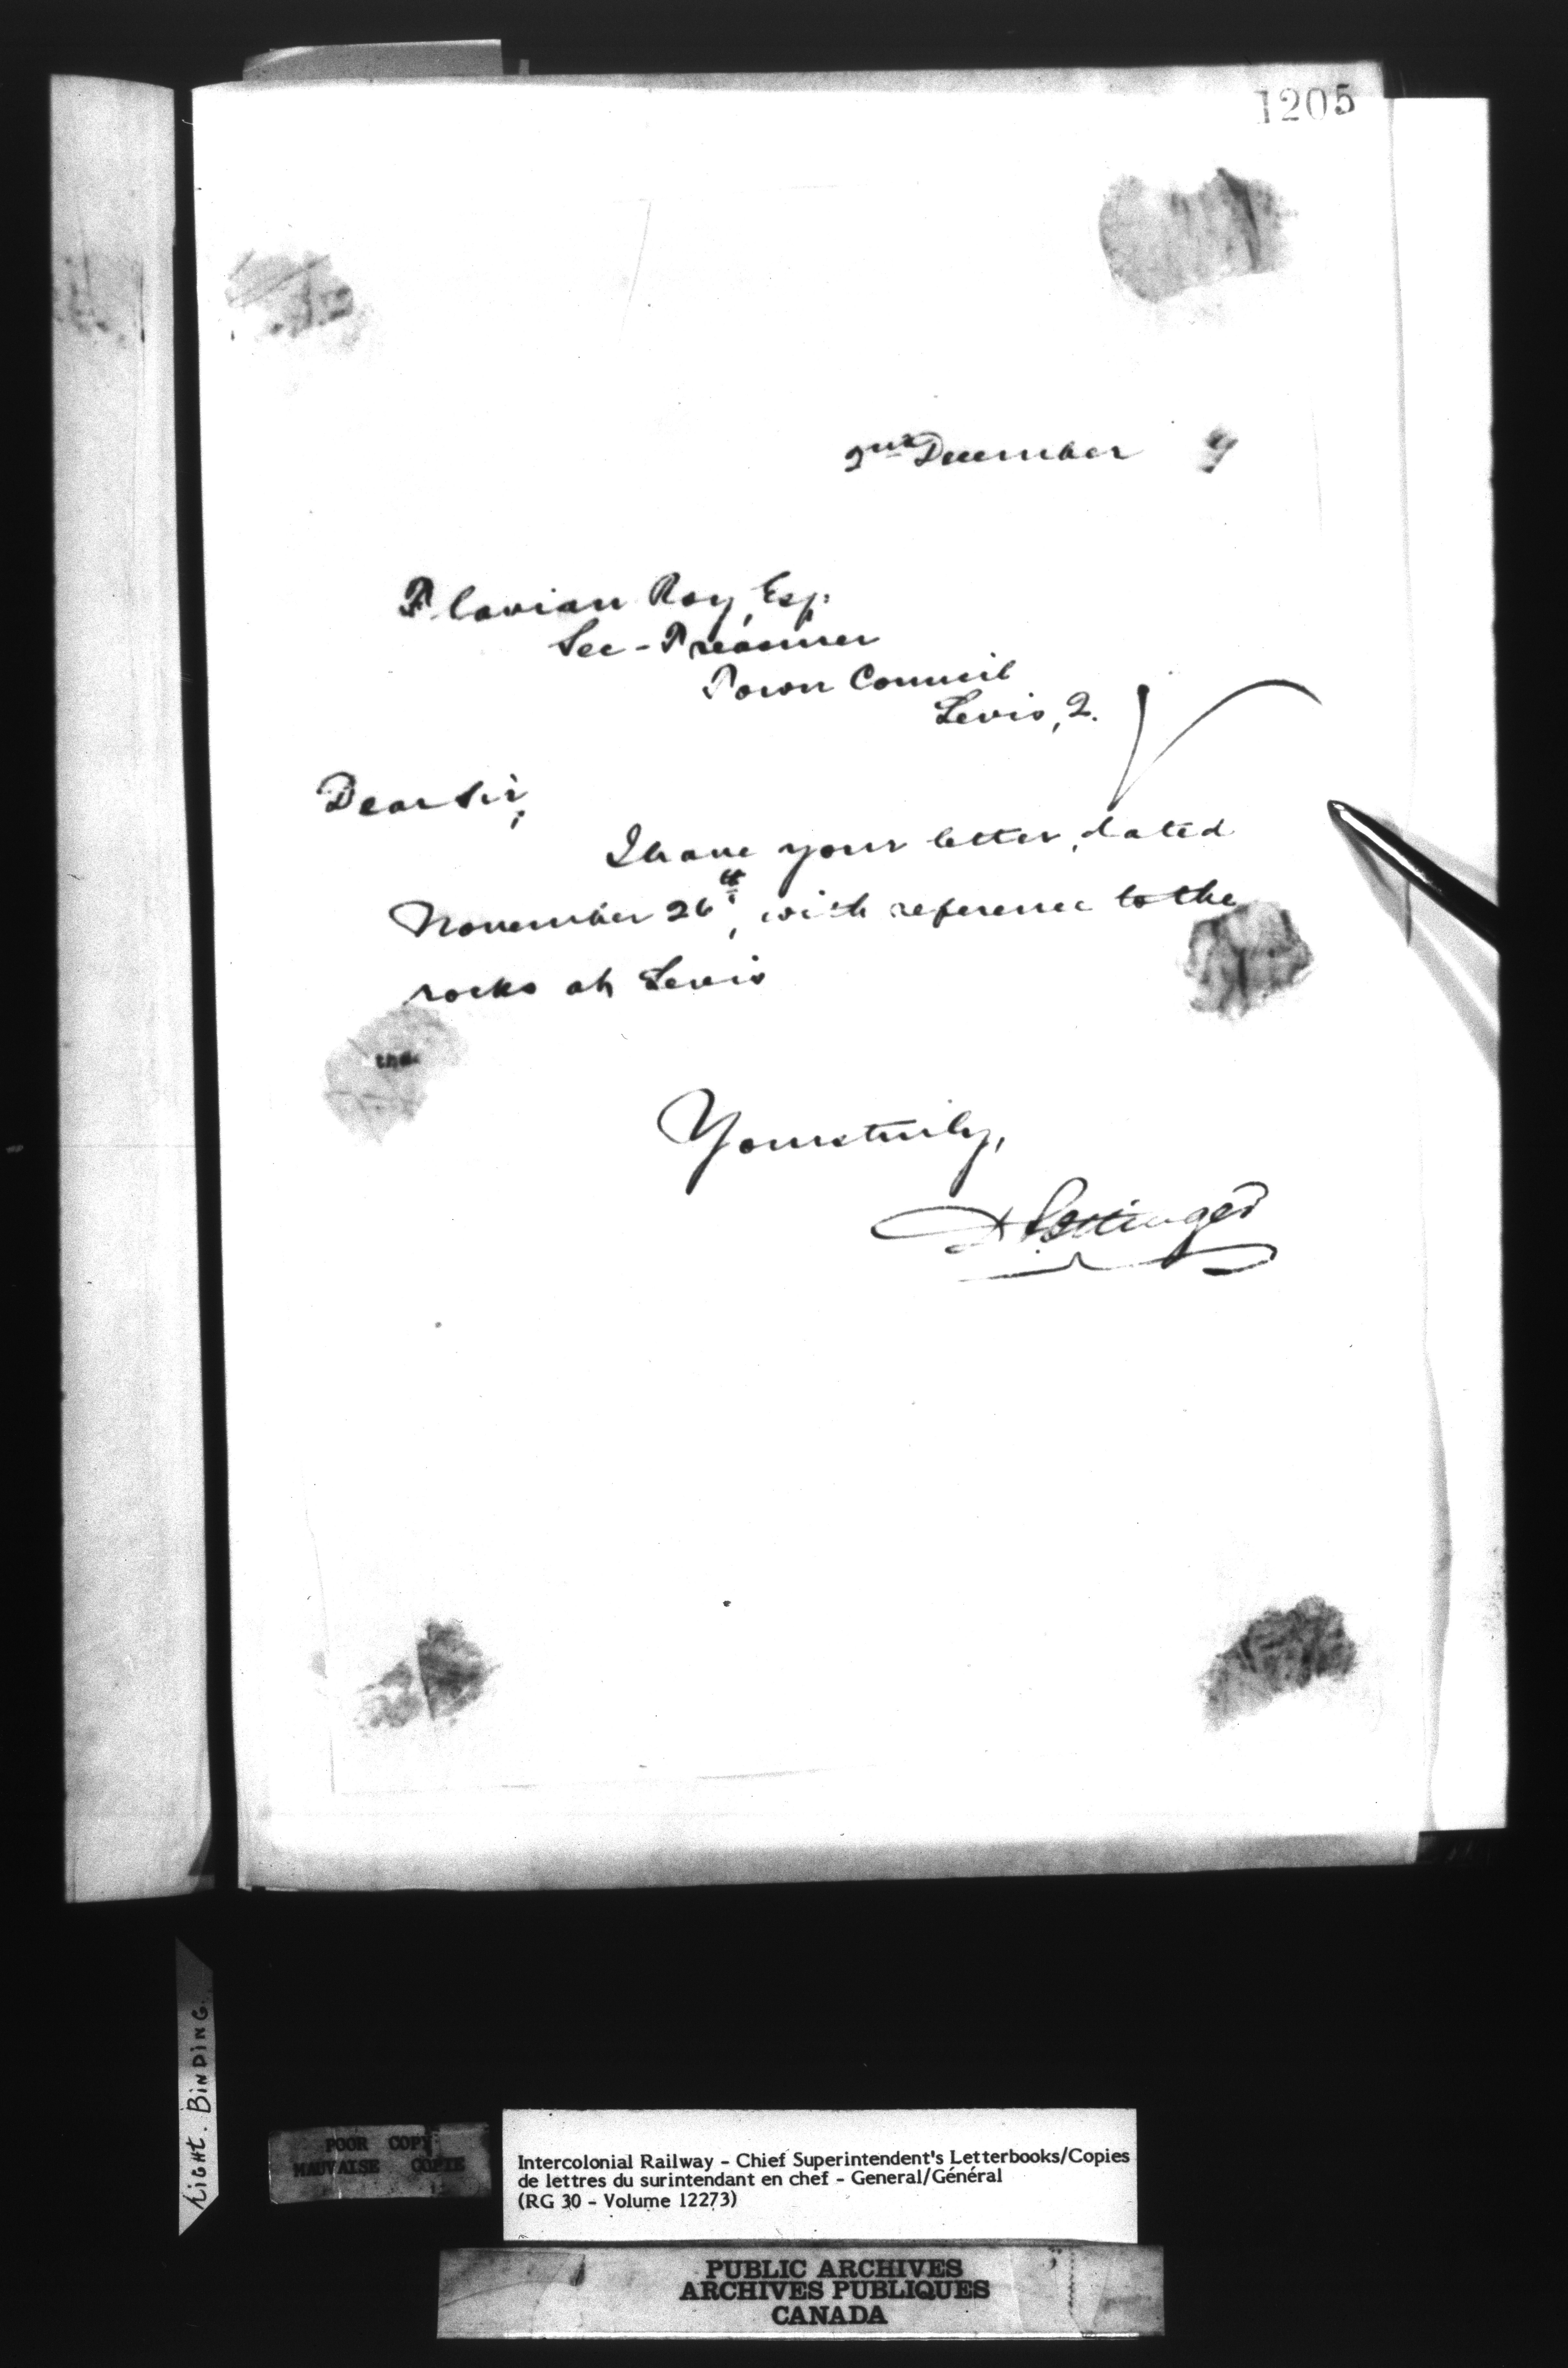 1205
2nd December 9
Flavian Roy, Esq.
Sec-Treasurer
Town Council
Levis, Q.
Dear Sir,
I have your letter, dated
November 26th, with reference to the
rocks at Levis
the
Yours truly,
D Pottinger
Light. Binding.
POOR COPY
MAUVAISE COPIE
Intercolonial Railway - Chief Superintendent's Letterbooks/Copies
de lettres du surintendant en chef - General/Général
(RG 30 - Volume 12273)
PUBLIC ARCHIVES
ARCHIVES PUBLIQUES
CANADA